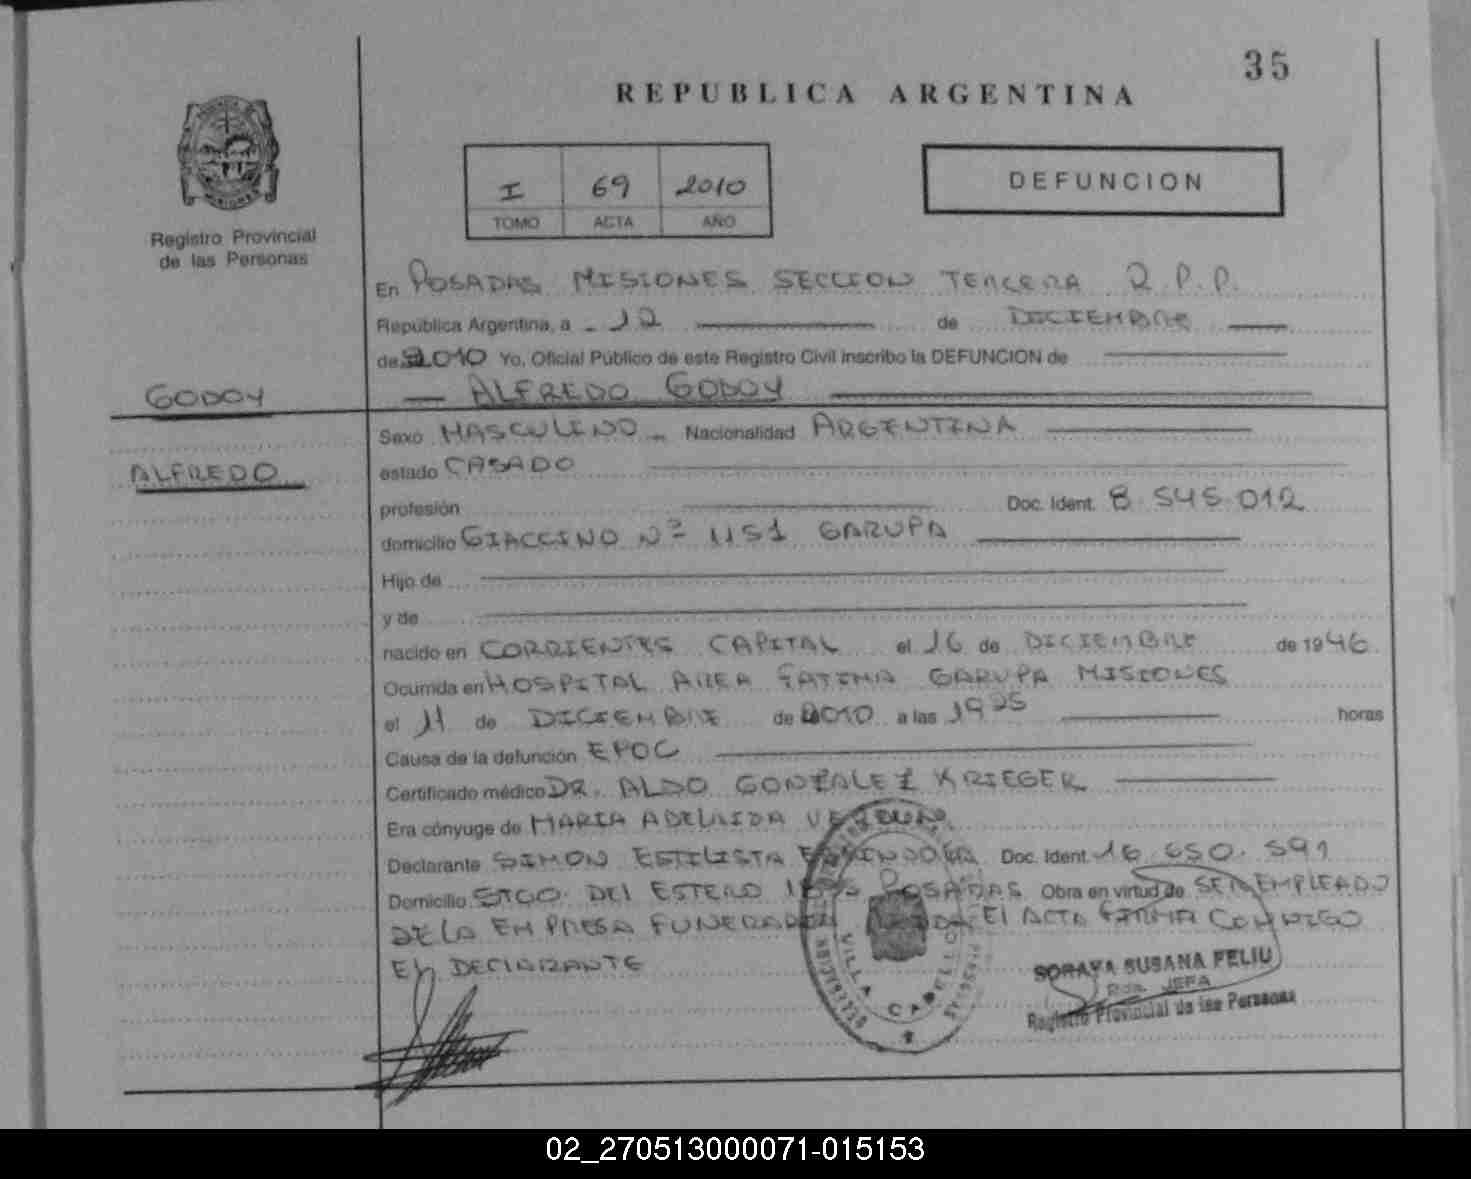 35
REPUBLICA ARGENTINA
I 69 2010
TOMO ACTA AÑO
DEFUNCION
Registro Provincial
de las Personas
En POSADAS MISIONES SECCION TERCERA R.P.P.
República Argentina, a 12 de DICIEMBRE
de 2010 Yo, Oficial Público de este Registro Civil inscribo la DEFUNCION de
GODOY
ALFREDO GODOY
Sexo MASCULINO Nacionalidad ARGENTINA
ALFREDO
estado CASADO
profesión Doc. Ident. 8.545.012
domicilio GIACCINO Nº 1151 GARUPA
Hijo de
y de
nacido en CORRIENTES CAPITAL el 16 de DICIEMBRE de 1946
Ocurrida en HOSPITAL AREA FATIMA GARUPA MISIONES
el 11 de DICIEMBRE de 2010 a las 19 25 horas
Causa de la defunción EPOC
Certificado médico DR. ALDO GONZALEZ KRIEGER
Era cónyuge de MARIA ADELAIDA VERDUN
Declarante SIMON ESTILISTA Doc. Ident. 16.650.591
Domicilio STGO. DEL ESTERO POSADAS Obra en virtud de SER EMPLEADO
DE LA EMPRESA FUNERARIA EL ACTA FIRMA CONMIGO
EL DECLARANTE
VILLA CABELLO
SORAYA SUSANA FELIU
JEFA
Registro Provincial de las Personas
02_270513000071-015153